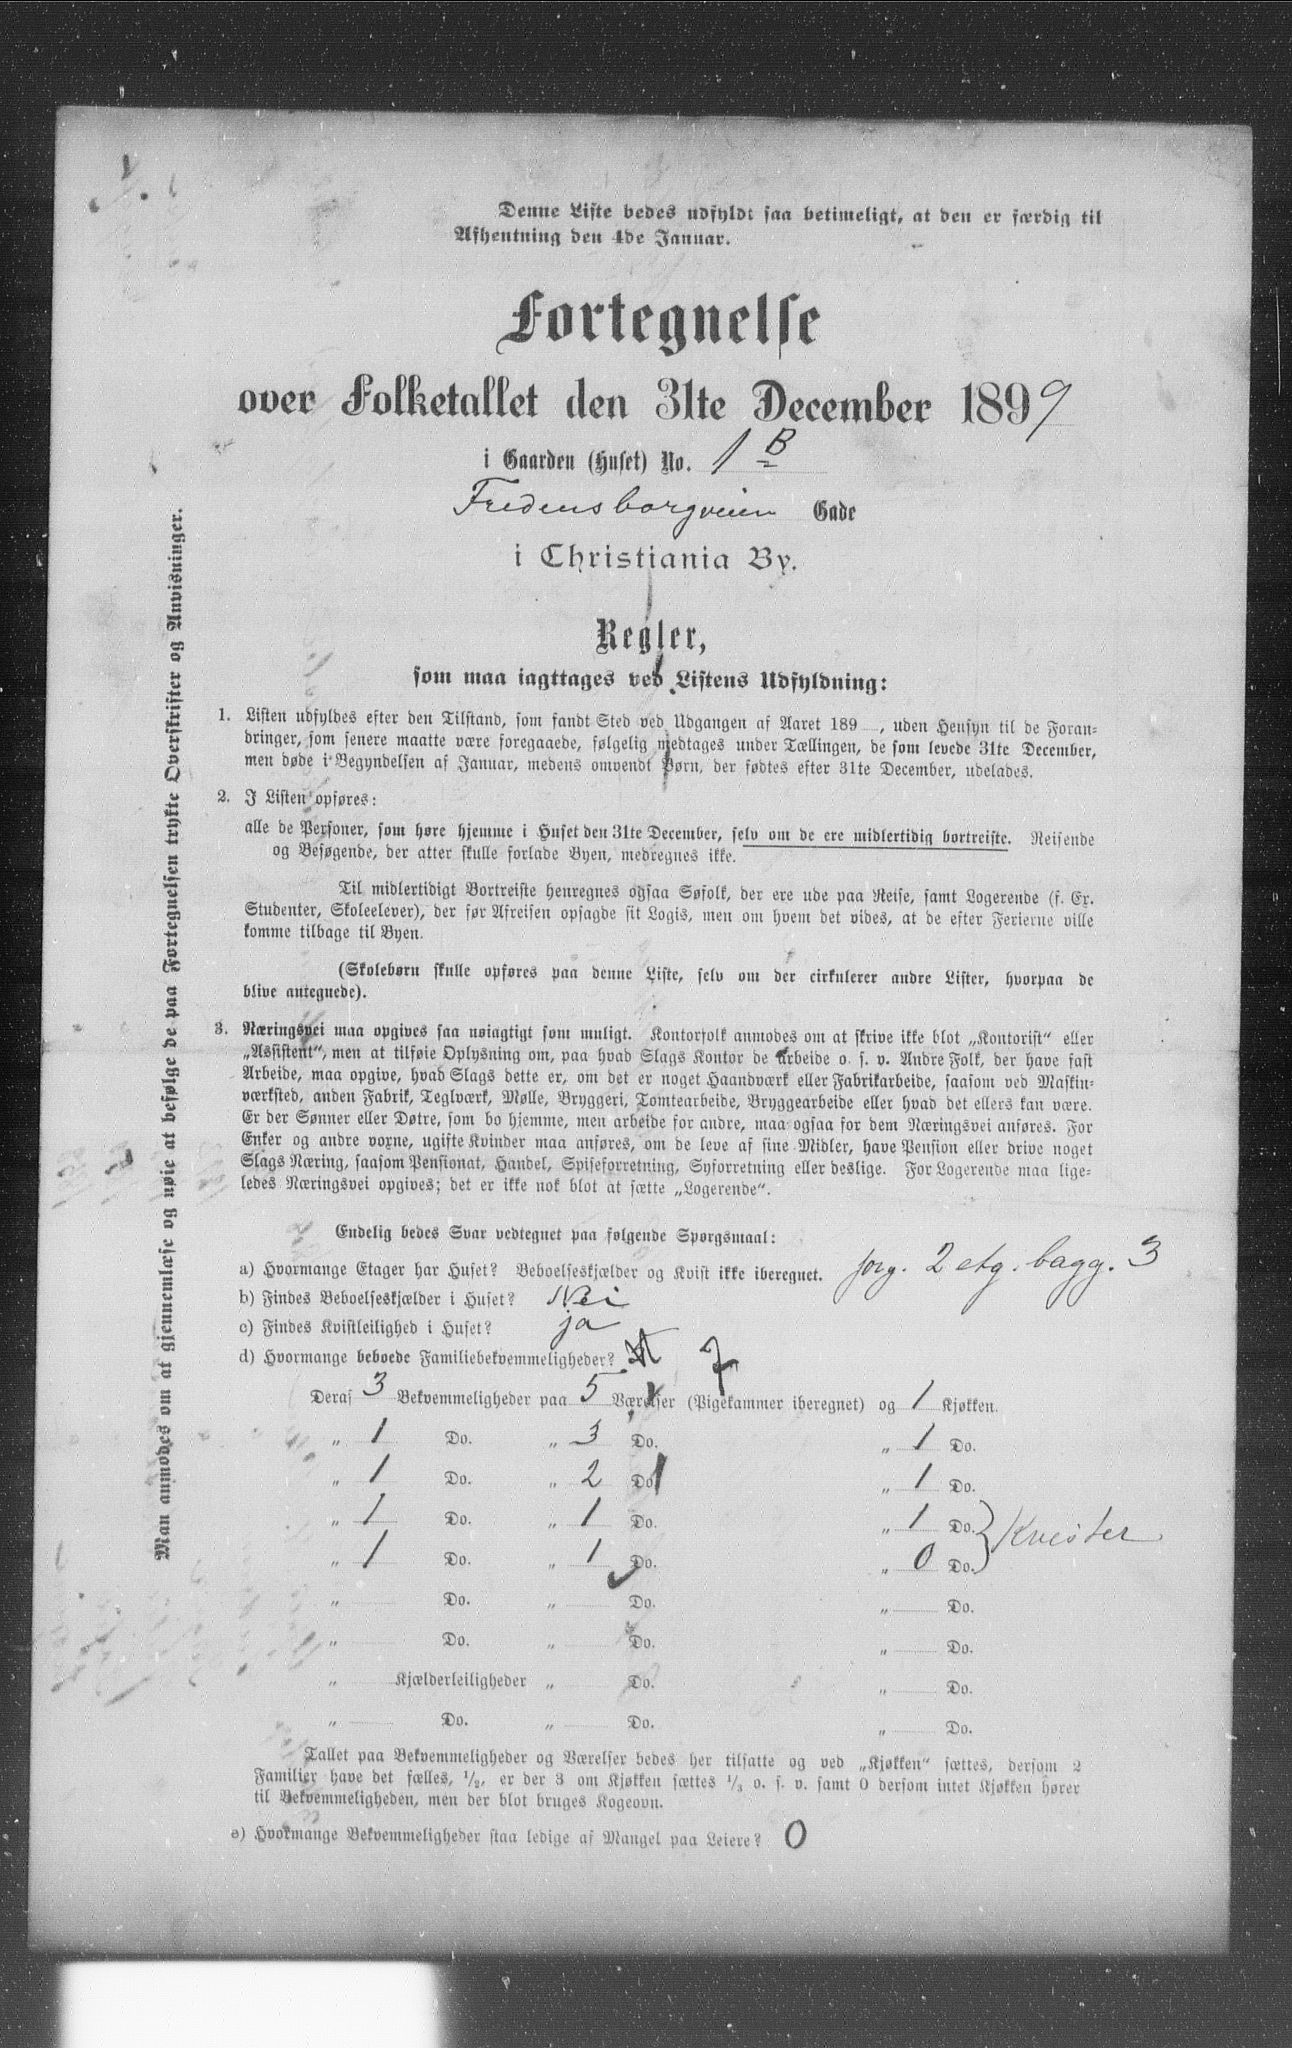 Denne Liste bedes udfyldt saa betimeligt, at den er færdig til
Afhentning den 4de Januar.
Fortegnelse
over Folketallet den 31te December 1899
i Gaarden (Huset) No. 1 B
Fredensborgveien Gade
i Christiania By.
Regler,
som maa iagttages ved Listens Udfyldning:
1. Listen udfyldes efter den Tilstand, som fandt Sted ved Udgangen af Aaret 189 , uden Hensyn til de Foran-
dringer, som senere maatte være foregaaede, følgelig medtages under Tællingen, de som levede 31te December,
men døde i Begyndelsen af Januar, medens omvendt Børn, der fødtes efter 31te December, udelades.
2. I Listen opføres:
alle de Personer, som høre hjemme i Huset den 31te December, selv om de ere midlertidig bortreiste. Reisende
og Besøgende, der atter skulle forlade Byen, medregnes ikke.
Til midlertidigt Bortreiste henregnes ogsaa Søfolk, der ere ude paa Reise, samt Logerende (f. Ex.
Studenter, Skoleelever), der før Afreisen opsagde sit Logis, men om hvem det vides, at de efter Ferierne ville
komme tilbage til Byen.
(Skolebørn skulle opføres paa denne Liste, selv om der cirkulerer andre Lister, hvorpaa de
blive antegnede).
3. Næringsvei maa opgives saa nøiagtigt som muligt. Kontorfolk anmodes om at skrive ikke blot „Kontorist" eller
„Assistent", men at tilføie Oplysning om, paa hvad Slags Kontor de arbeide o. s. v. Andre Folk, der have fast
Arbeide, maa opgive, hvad Slags dette er, om det er noget Haandværk eller Fabrikarbeide, saasom ved Maskin-
værksted, anden Fabrik, Teglværk, Mølle, Bryggeri, Tomtearbeide, Bryggearbeide eller hvad det ellers kan være.
Er der Sønner eller Døtre, som bo hjemme, men arbeide for andre, maa ogsaa for dem Næringsvei anføres. For
Enker og andre voxne, ugifte Kvinder maa anføres, om de leve af sine Midler, have Pension eller drive noget
Slags Næring, saasom Pensionat, Handel, Spiseforretning, Syforretning eller deslige. For Logerende maa lige-
ledes Næringsvei opgives; det er ikke nok blot at sætte „Logerende".
Endelig bedes Svar vedtegnet paa følgende Spørgsmaal:
a) Hvormange Etager har Huset? Beboelseskjælder og Kvist ikke iberegnet. forg. 2 etg. bagg. 3
b) Findes Beboelseskjælder i Huset? Nei
c) Findes Kvistleilighed i Huset? ja
d) Hvormange beboede Familiebekvemmeligheder? 7
Deraf 3 Bekvemmeligheder paa 5 Værelser (Pigekammer iberegnet) og 1 Kjøkken.
„ 1 Do. „ 3 Do. „ 1 Do.
„ 1 Do. „ 2 Do. „ 1 Do.
„ 1 Do. „ 1 Do. „ 1 Do.
„ 1 Do. „ 1 Do. „ 0 Do. Kvister
„ Do. „ Do. „ Do.
„ Do. „ Do. „ Do.
„ Kjælderleiligheder „ Do. „ Do.
„ Do. „ Do. „ Do.
Tallet paa Bekvemmeligheder og Værelser bedes her tilsatte og ved „Kjøkken" sættes, dersom 2
Familier have det fælles, 1/2, er der 3 om Kjøkken sættes 1/3 o. s. v. samt 0 dersom intet Kjøkken hører
til Bekvemmeligheden, men der blot bruges Kogeovn.
e) Hvormange Bekvemmeligheder staa ledige af Mangel paa Leiere? 0
Man anmodes om at gjennemlæse og nøie at befølge de paa Fortegnelsen trykte Overskrifter og Anvisninger.